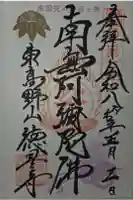 奉拝 令和八年五月二日
南無阿彌陀佛
東高野山 徳星寺